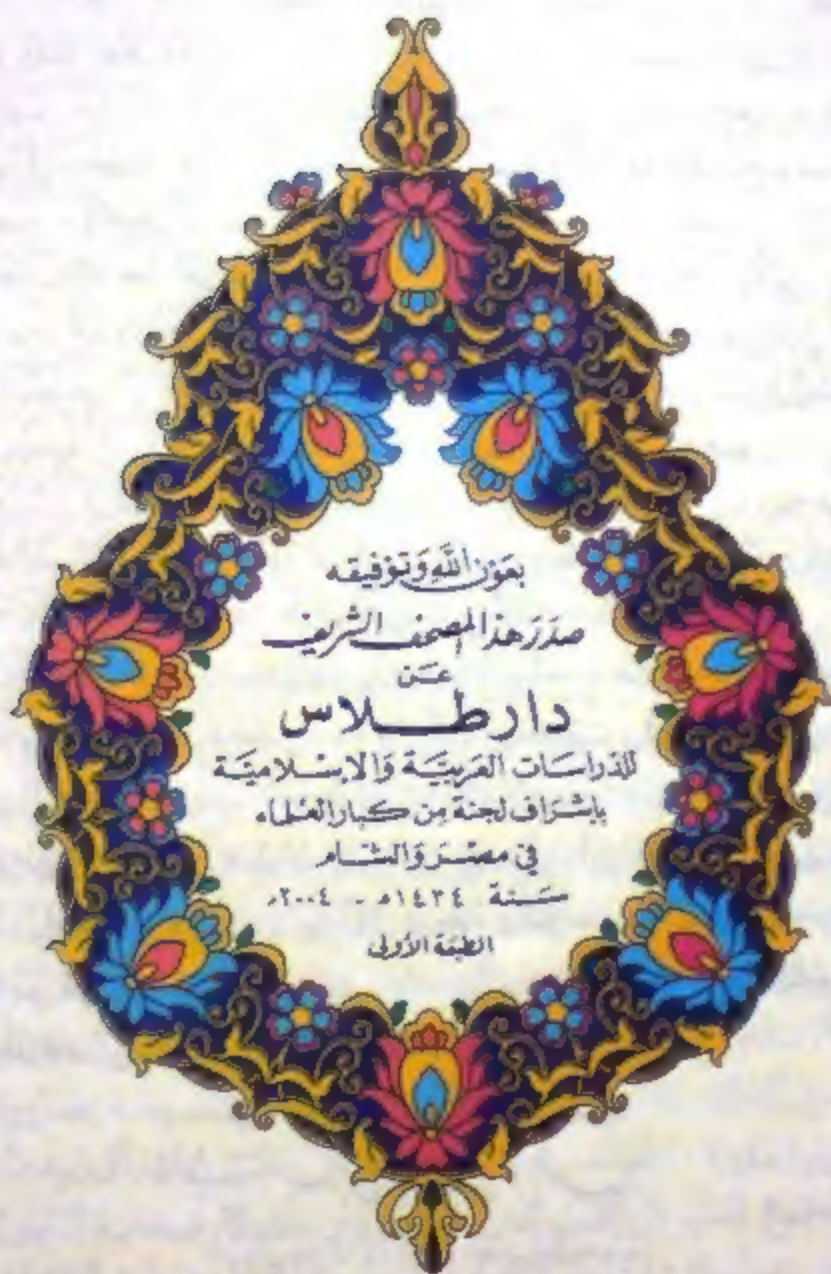 بعَون اللَّه وَتوْفيقه
صدَرَ هذا المصحف الشريف
عَن
دار طلاس
للدّراسَات العَربيَّة وَالإسْلاميَّة
بإشرَاف لجنة مِن كبار العُلماء
في مصْرَ وَالشام
سَنة ١٤٣٤هـ - ٢٠٠٤م
الطبعَة الأولى